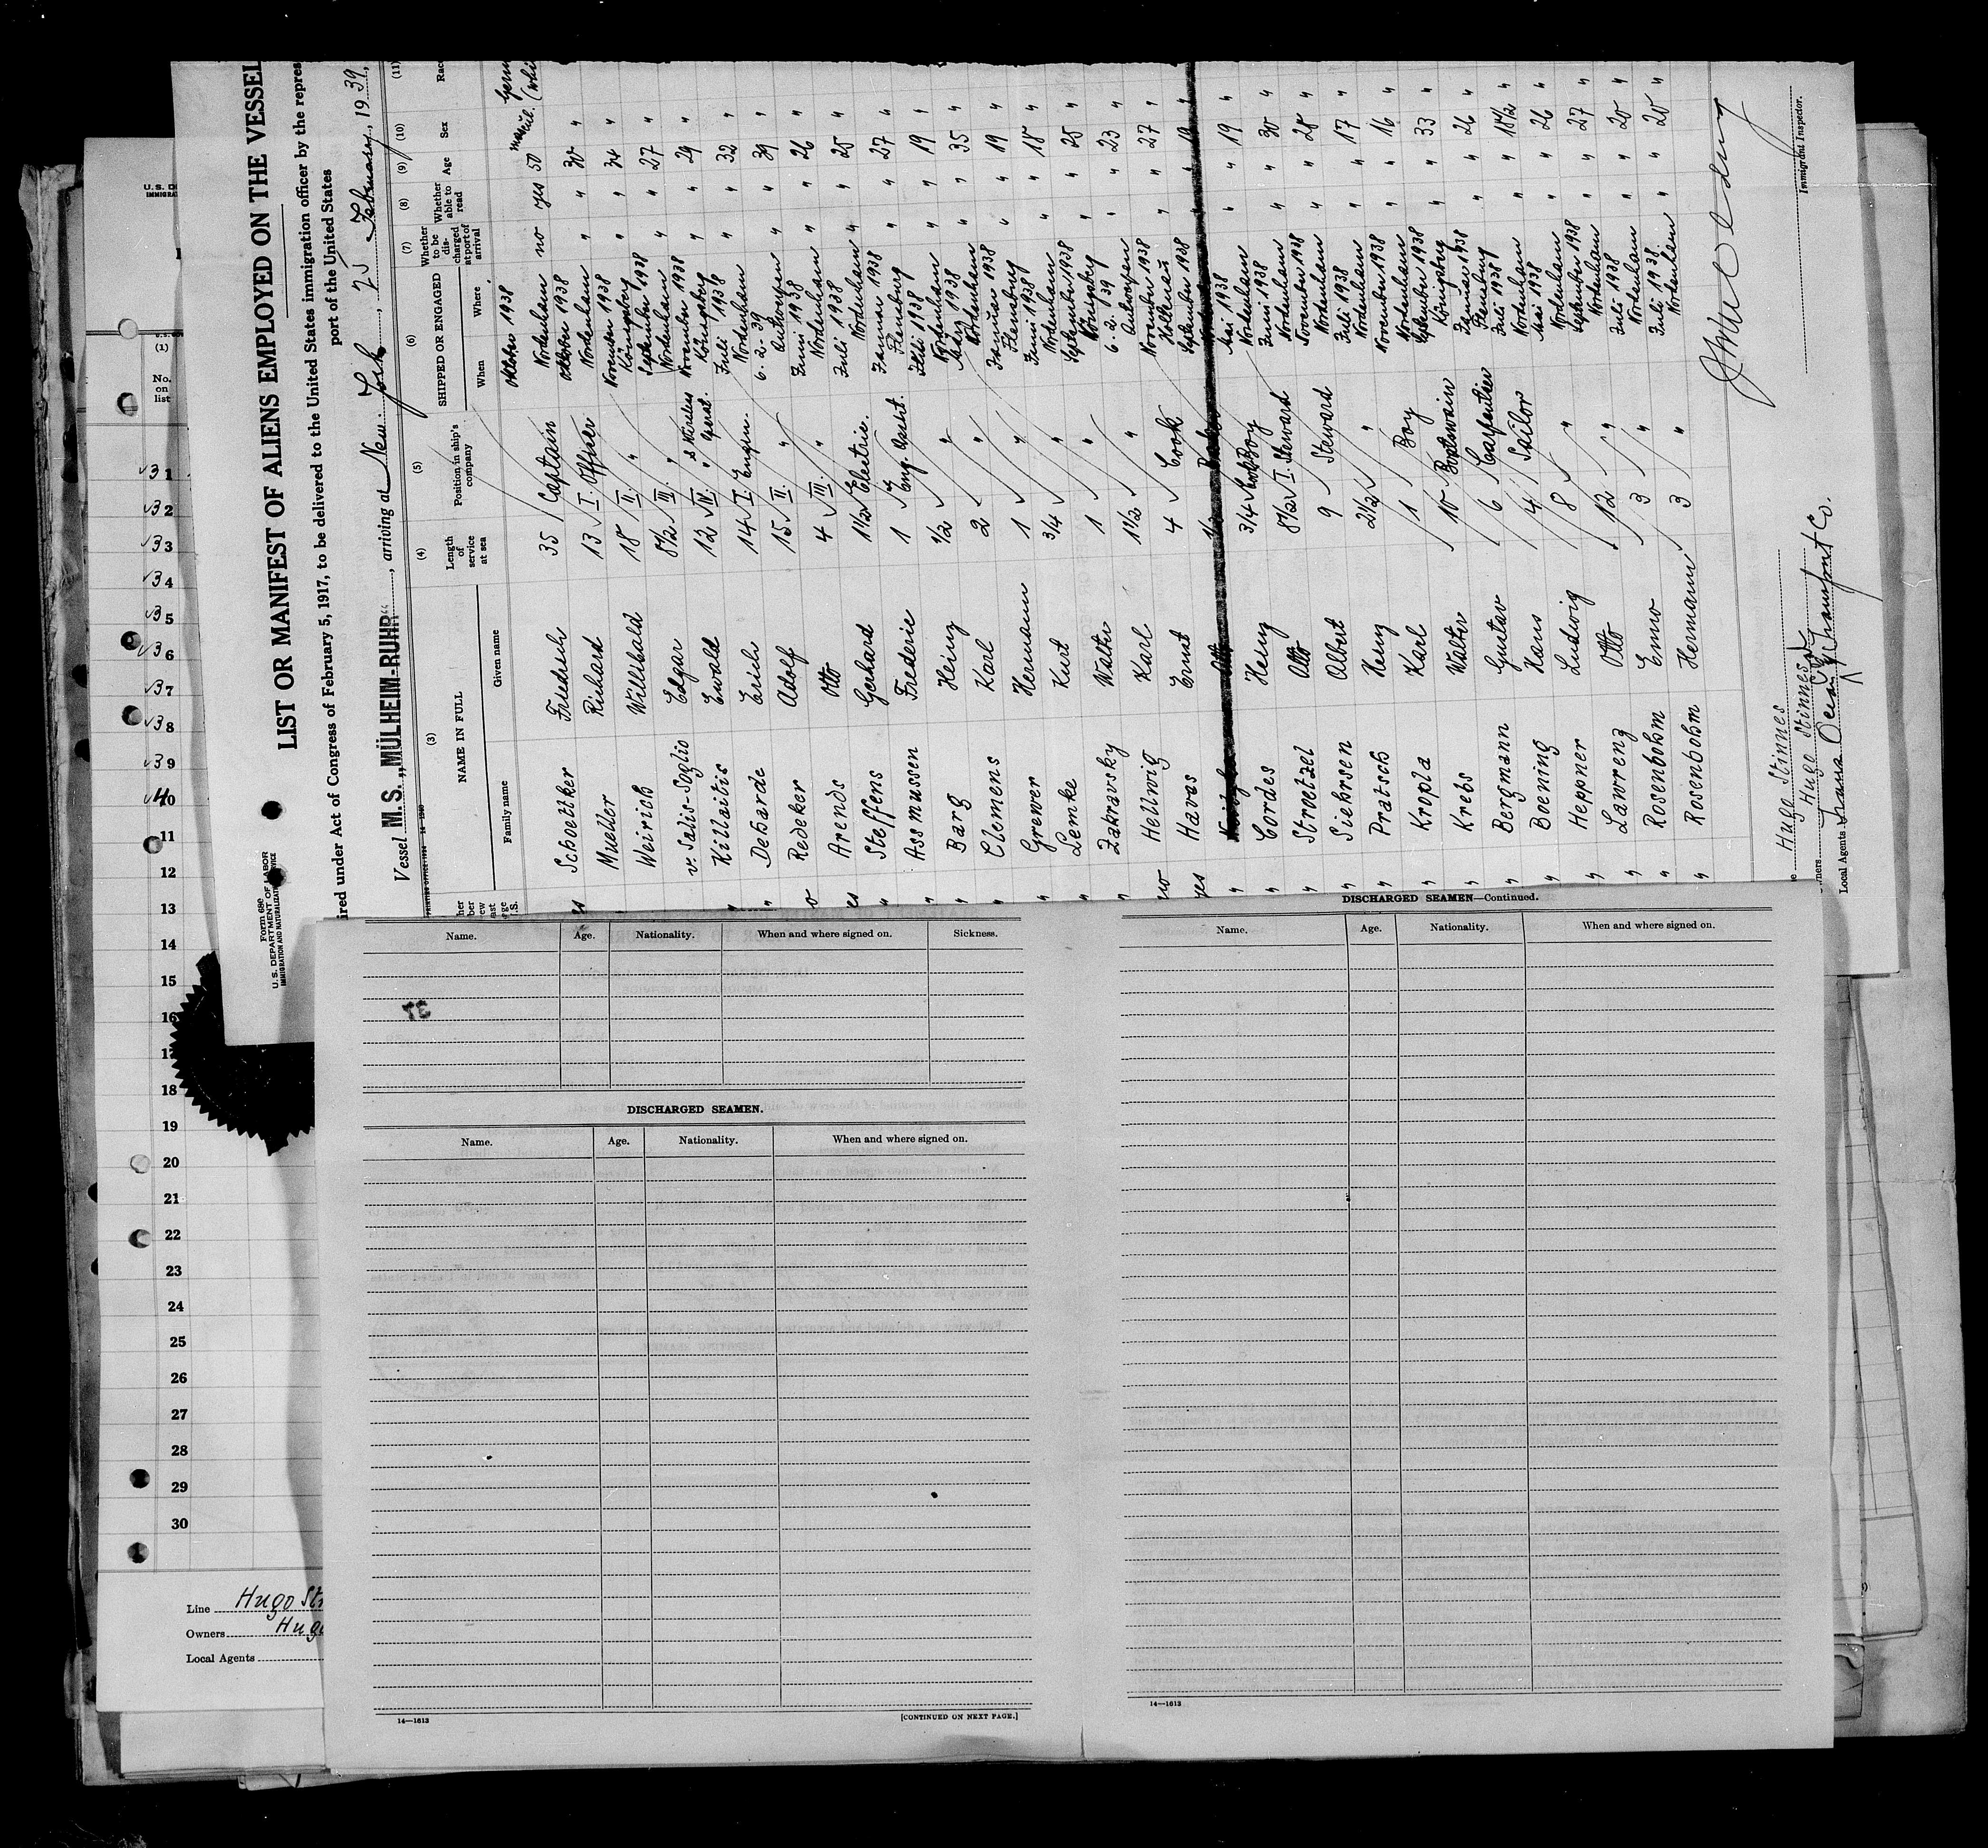 LIST OR MANIFEST OF ALIENS EMPLOYED ON THE VESSEL
ired under Act of Congress of February 5, 1917, to be delivered to the United States immigration officer by the repres
port of the United States
Vessel M.S. „MÜLHEIM-RUHR“, arriving at New York, February, 1939,
Form 680
U.S. DEPARTMENT OF LABOR
IMMIGRATION AND NATURALIZATION SERVICE
(3) (4) (5) (6) (7) (8) (9) (10) (11)
NAME IN FULL
Family name Given name
Length of service at sea
Position in ship's company
SHIPPED OR ENGAGED
When Where
Whether to be discharged at port of arrival
Whether able to read
Age
Sex
Race
Schoettker Friedrich 35 Captain Oktober 1938 Nordenham no yes 50
Mueller Richard 13 I. Officer Oktober 1938 Nordenham " " 30 "
Weirich Willibald 18 II. " November 1938 Königsberg " " 34 "
v. Salis-Soglio Edgar 8½ III. " September 1938 Nordenham " " 27 "
Killaitis Ewald 12 IV. " & Wireless Operat. November 1938 Königsberg " " 29 "
Deharde Erich 14 I. Engin. Juli 1938 Nordenham " " 32 "
Redeker Adolf 15 II. " 6.2.39 Antwerpen " " 39 "
Arends Otto 4 III. " Juni 1938 Nordenham " " 26 "
Steffens Gerhard 1½ Electric. Juli 1938 Nordenham " " 25 "
Assmussen Frederic 1 Eng. Assist. Januar 1938 Flensburg " " 27 "
Barg Heinz ½ " Juli 1938 Nordenham " " 19 "
Clemens Karl 2 " März 1938 Nordenham " " 35 "
Grewer Hermann 1 " Januar 1938 Flensburg " " 19 "
Lemke Kurt ¾ " Juni 1938 Nordenham " " 18 "
Zakravsky Walter 1 " September 1938 Königsberg " " 25 "
Hellwig Karl 1½ " 6.2.39 Antwerpen " " 23 "
Havas Ernst 4 Cook November 1938 Holtenau " " 27 "
Cordes Heinz ¾ Cook Boy Mai 1938 Nordenham " " 19 "
Stroetzel Otto 8½ I. Steward Juni 1938 Nordenham " " 30 "
Siekrsen Albert 9 Steward November 1938 Nordenham " " 28 "
Pratsch Heinz 2½ " Juli 1938 Nordenham " " 17 "
Kropla Karl 1 Boy November 1938 Nordenham " " 16 "
Krebs Walter 10 Boatswain September 1938 Königsberg " " 33 "
Bergmann Gustav 6 Carpentier Januar 1938 Flensburg " " 26 "
Boening Hans 4 Sailor Juli 1938 Nordenham " " 18½ "
Heppner Ludwig 8 " Mai 1938 Nordenham " " 26 "
Lawrenz Otto 12 " September 1938 Nordenham " " 27 "
Rosenbohm Enno 3 " Juli 1938 Nordenham " " 20 "
Rosenbohm Hermann 3 " Juli 1938 Nordenham " " 20 "
Hugo Stinnes
Hugo Stinnes
Local Agents Trans Ocean Transport Co.
Immigrant Inspector.
(1)
No. on list
1
2
3
4
5
6
7
8
9
10
11
12
13
14
15
16
17
18
19
20
21
22
23
24
25
26
27
28
29
30
Line Hugo Sti
Owners Hugo
Local Agents
Name. Age. Nationality. When and where signed on. Sickness.
DISCHARGED SEAMEN.
Name. Age. Nationality. When and where signed on.
14—1613
[CONTINUED ON NEXT PAGE.]
DISCHARGED SEAMEN—Continued.
Name. Age. Nationality. When and where signed on.
14—1613